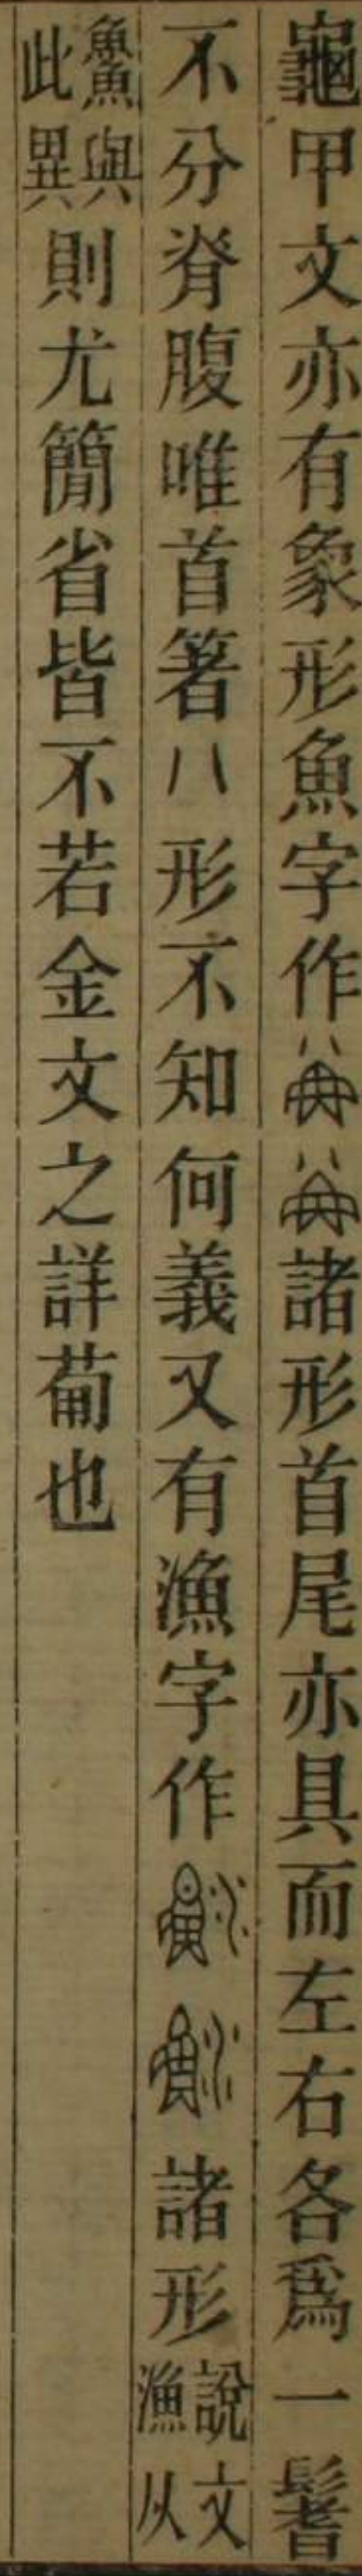 龜甲文亦有象形魚字作諸形首尾亦具而左右各爲一鬐
不分脊腹唯首箸八形不知何義又有漁字作諸形說文漁从
𩺰與此異則尤簡省皆不若金文之詳葡也